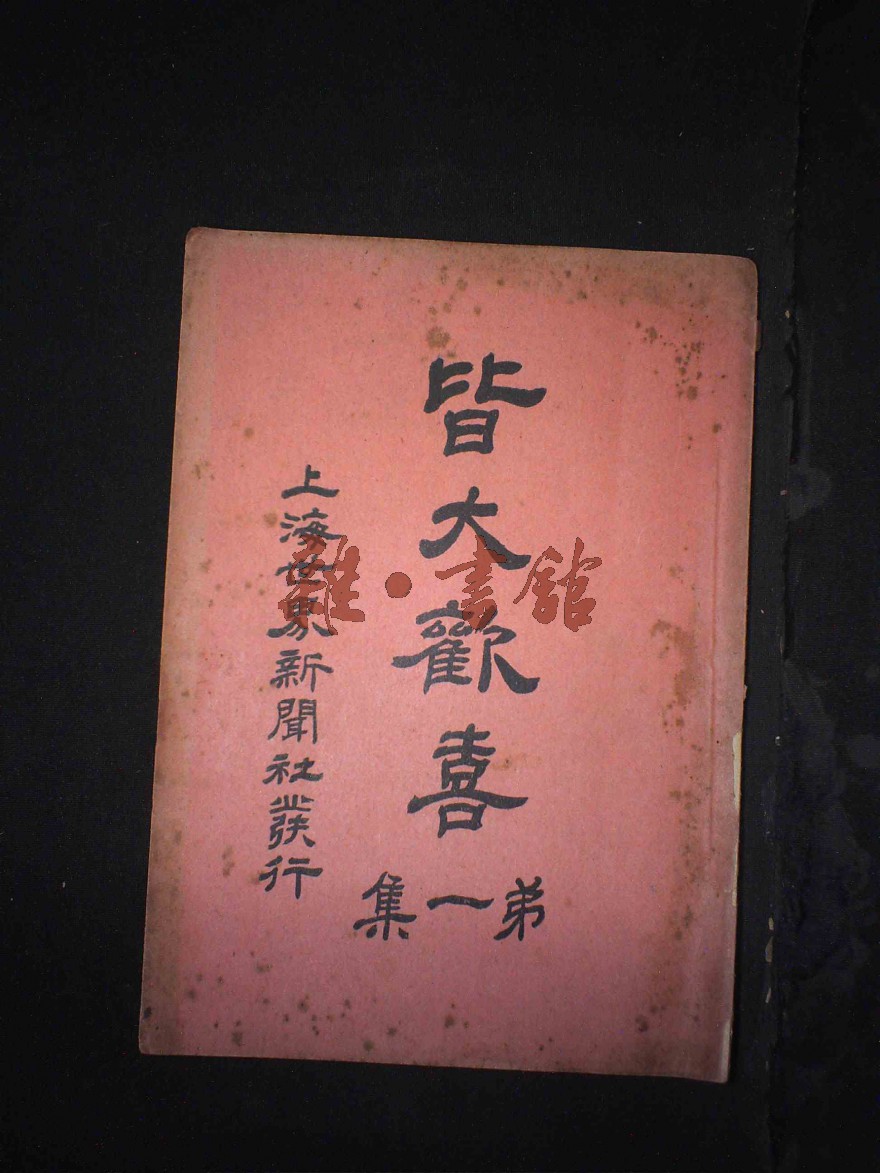 皆大歡喜
弟一集
上海世界新聞社發行
雜·書館